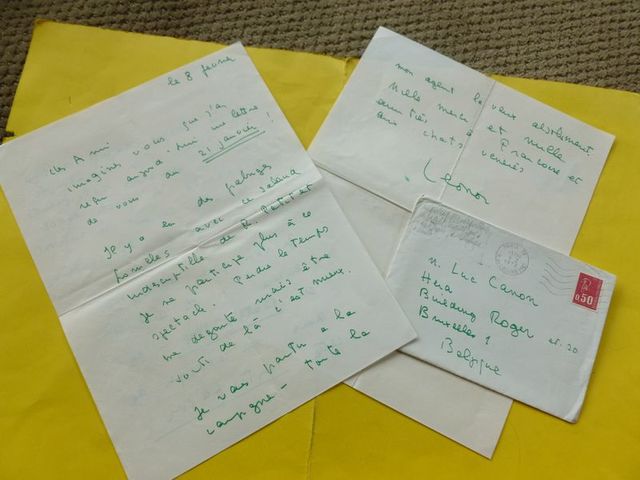 le 8 février
Cher Ami
imaginez vous que j'ai
reçu aujourd'hui une lettre
de vous du 21 Janvier!
Je y a eu des
avec ce salaud
de R. Petit et
je ne participe plus à ce
spectacle. Perdre le temps
me dégoute mais être
sorti de là c'est mieux.
Je vais partir à la
campagne - toute la
mon agent le veux absolument.
Mille merci et mille
amitiés à Francoise et
aux chats
Leonor
M. Luc Canon
Building Roger et. 20
Bruxelles 1
Belgique
0,50